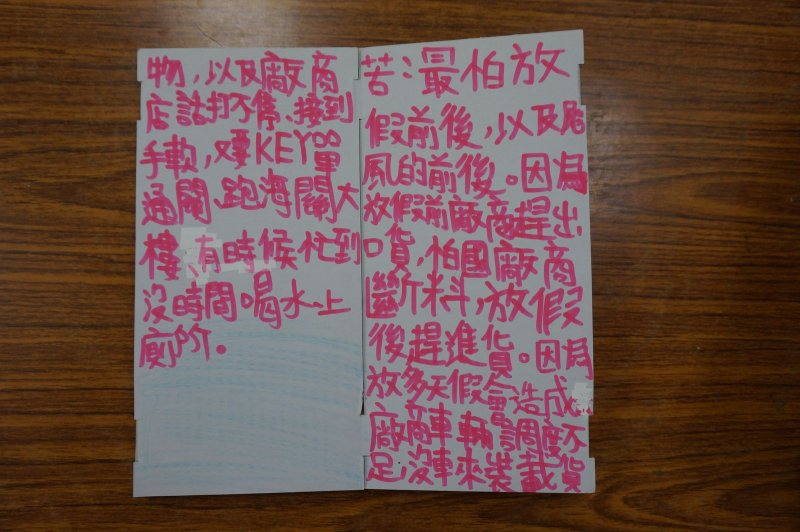 苦:最怕放
假前後,以及颱
風的前後。因為
放假前廠商趕出
口貨,怕國廠商
斷料,放假
後趕進貨。因為
放多天假會造成
廠商車輛調度不
足,沒車來裝載貨
物,以及廠商
店話打不停、接到
手軟,又要KEY單
通關、跑海關大
樓、有時候忙到
沒時間喝水、上
廁所。